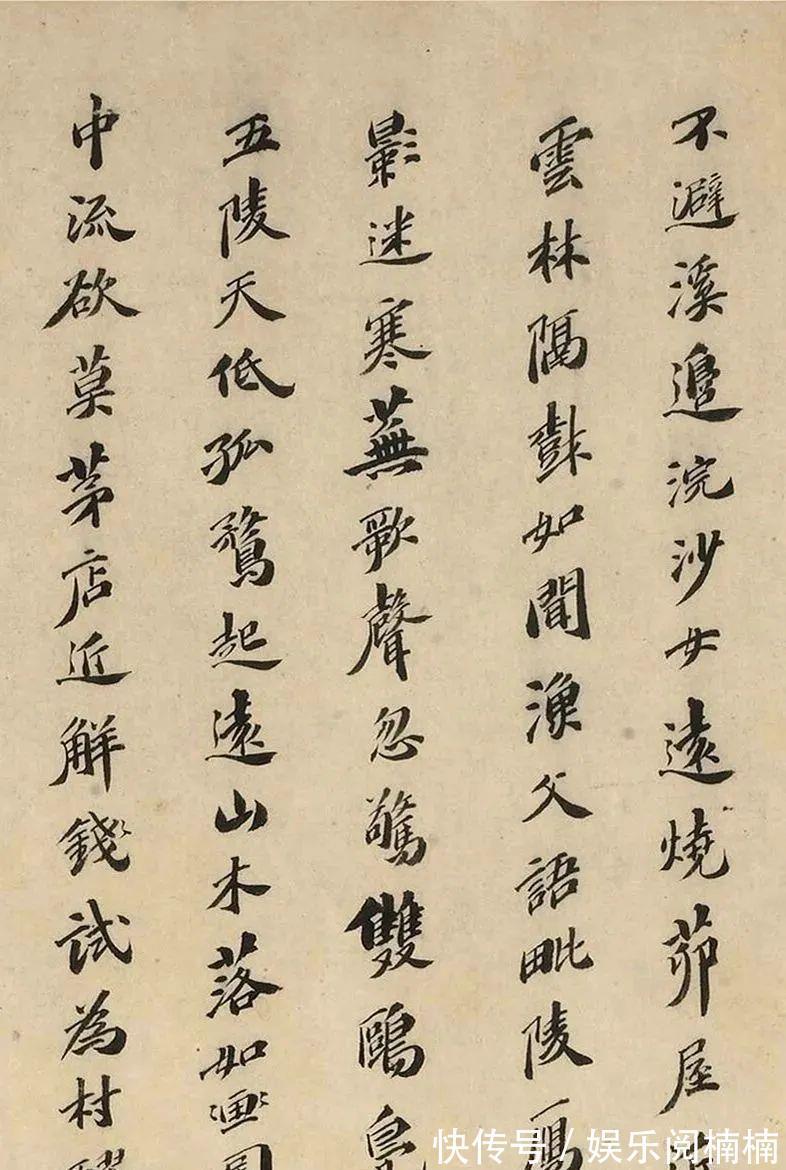 不避溪邊浣沙女遠燒茆屋
雲林隔如聞漁父語毗陵一
影迷寒蕪歌聲忽驚雙鷗
五陵天低孤鶩起遠山木落如畫
中流欲莫茅店近解錢試為村
快传号/娱乐阅楠楠